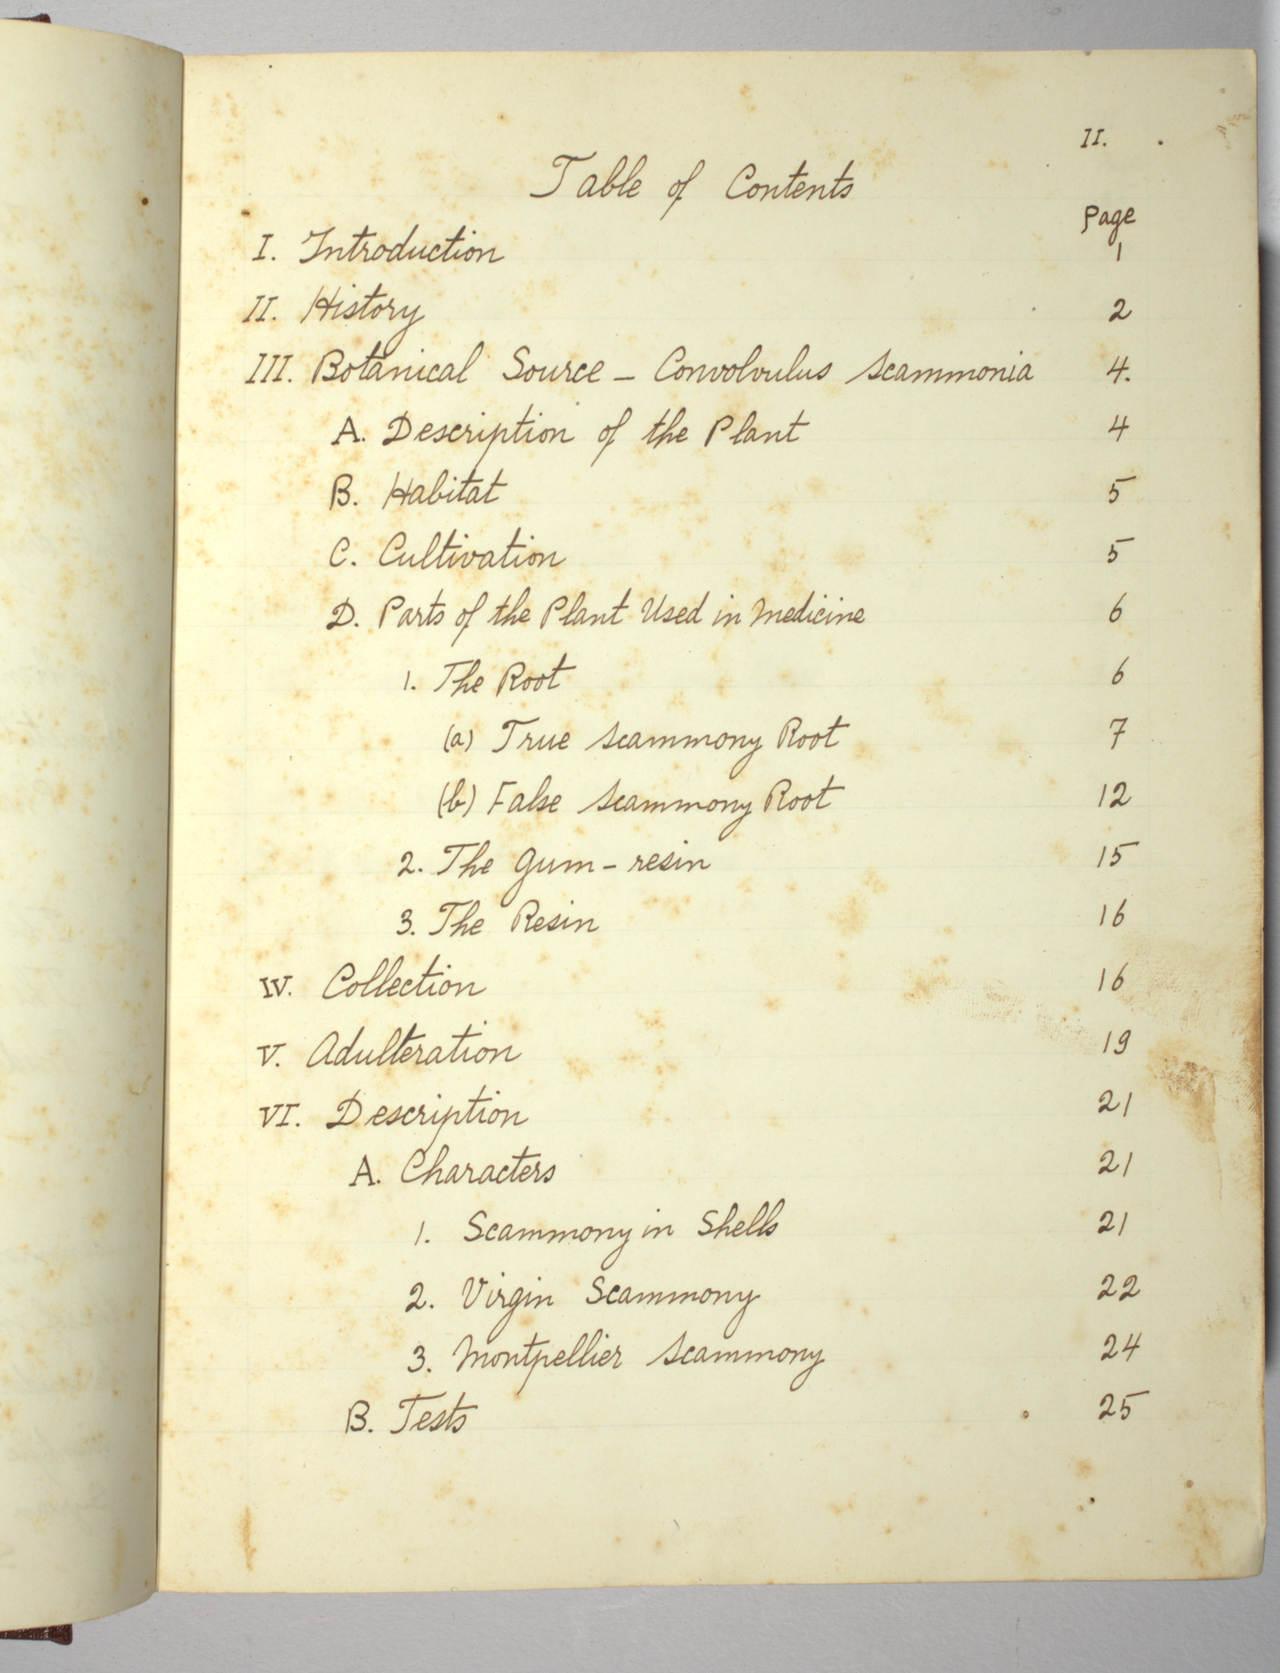 II.
Table of Contents
Page
I. Introduction 1
II. History 2
III. Botanical Source – Convolvulus Scammonia 4.
A. Description of the Plant 4
B. Habitat 5
C. Cultivation 5
D. Parts of the Plant Used in Medicine 6
1. The Root 6
(a) True Scammony Root 7
(b) False Scammony Root 12
2. The Gum-resin 15
3. The Resin 16
IV. Collection 16
V. Adulteration 19
VI. Description 21
A. Characters 21
1. Scammony in Shells 21
2. Virgin Scammony 22
3. Montpellier Scammony 24
B. Tests 25